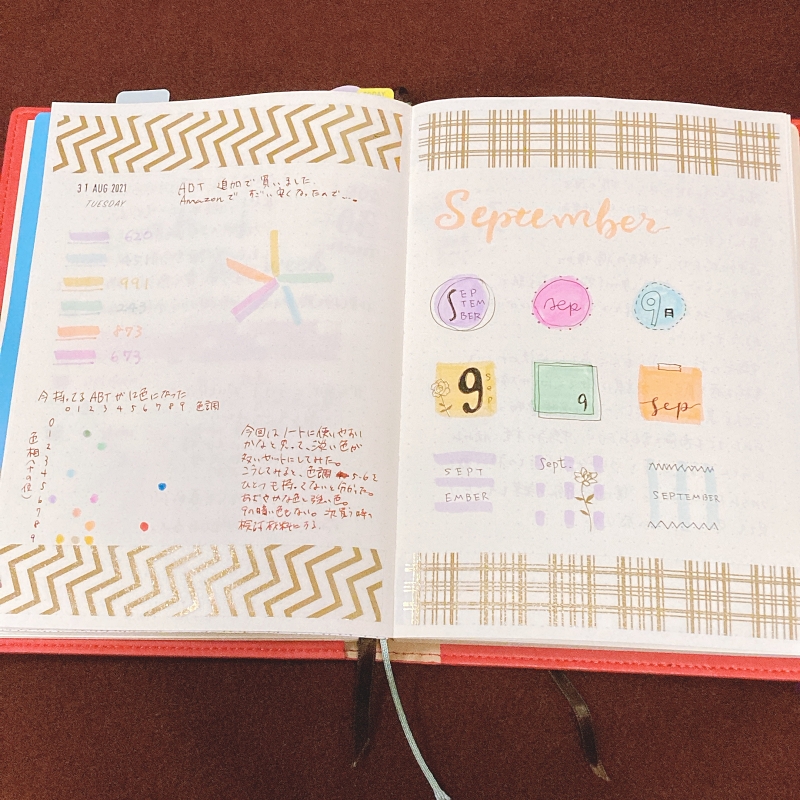 31 AUG 2021
TUESDAY
ABT 追加で買いました。
Amazonで だいぶ安くなってたので…。
620
451
991
243
873
673
今持ってるABTが12色になった
0 1 2 3 4 5 6 7 8 9 色調
色相(十の位)
0
1
2
3
4
5
6
7
8
9
今回はノートに使いやすい
かなと思って、淡い色が
多いセットにしてみた。
こうしてみると、色調 5-6と
ひとつも持ってないと分かった。
あざやかな色と強い色。
9の暗い色もない。次買う時の
検討材料にする。
September
SEP
TEM
BER
sep
9月
9
SEP
9
sep
SEPT
EMBER
Sept.
SEPTEMBER